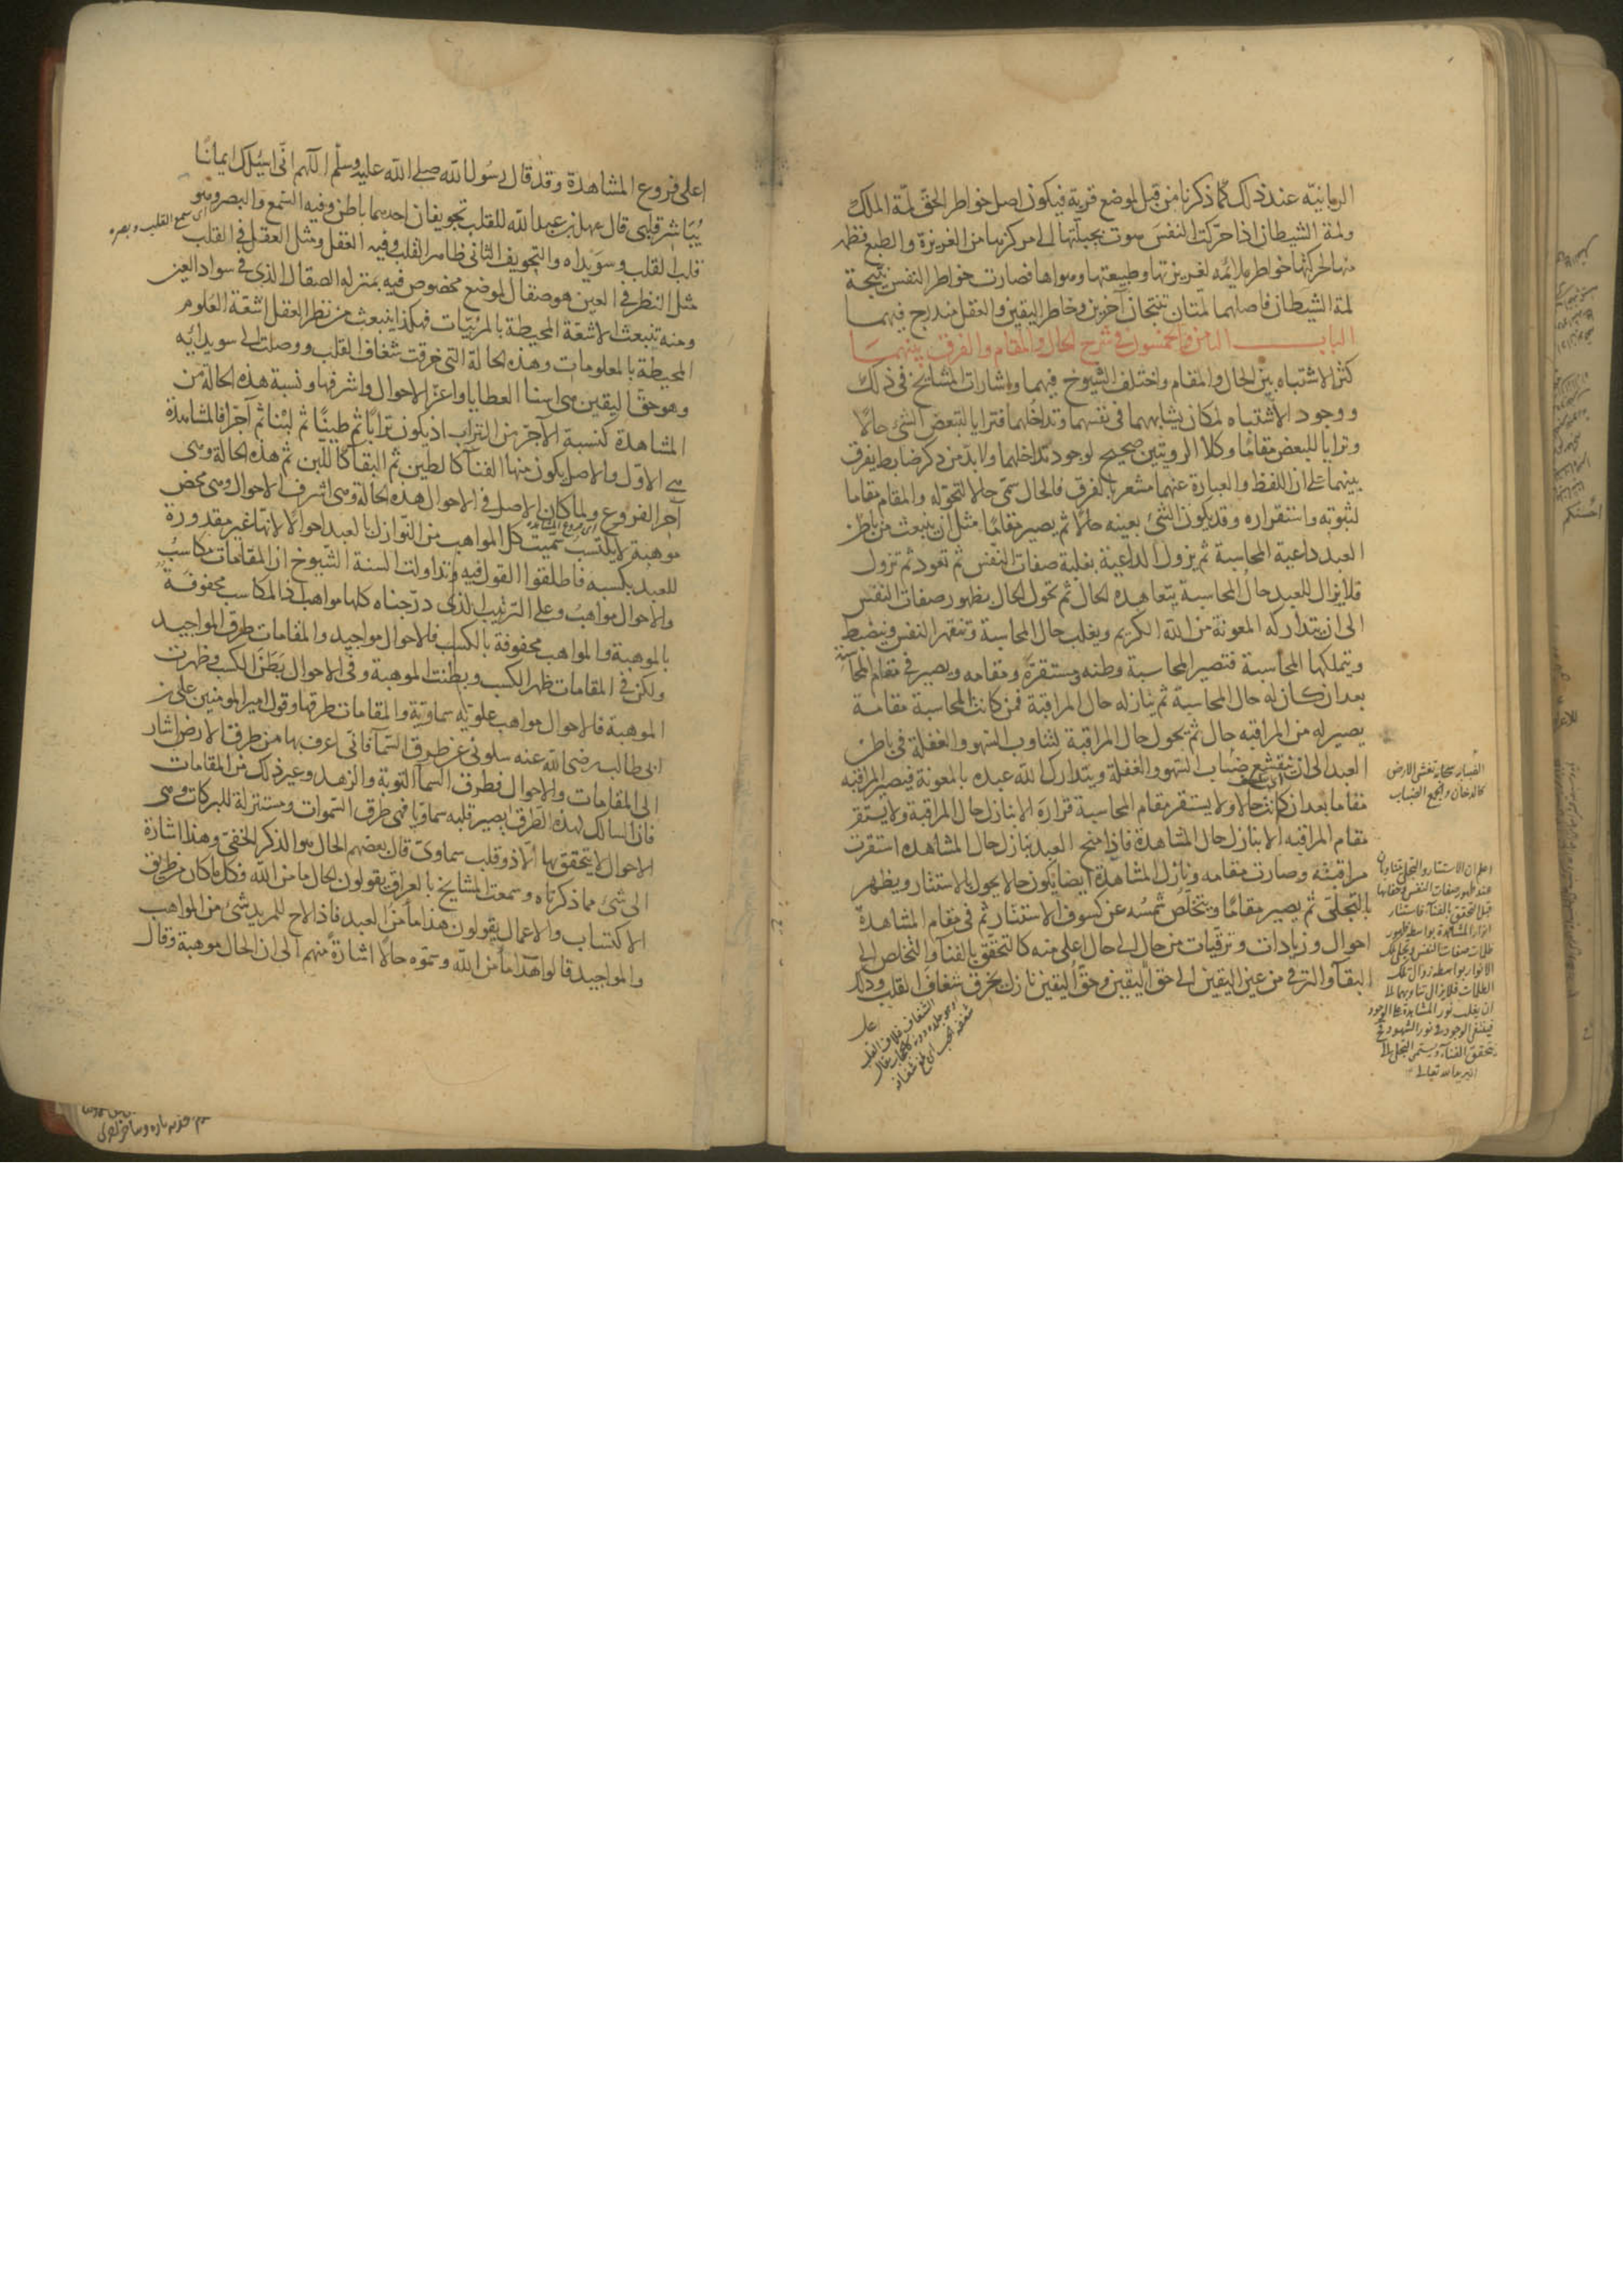 الربانية عند ذلك كما ذكرنا من قبل لموضع قربة فيكون اصل خواطر الحق لمة الملك
ولمة الشيطان اذا حركت النفس هوت بجبلتها الى مركزها من الغريزة والطبع فظهر
منها لحركتها خواطر ملائمه لغريزتها وطبيعتها وهواها فصارت خواطر النفس نتيجة
لمة الشيطان فاصلهما لمتان تنتجان آخرين وخاطر اليقين والعقل مندرج فيهما
الباب الثامن والخمسون في شرح الحال والمقام والفرق بينهما
كثر الاشتباه بين الحال والمقام واختلف الشيوخ فيهما واشارات المشايخ في ذلك
ووجود الاشتباه لمكان تشابههما في نفسهما وتداخلهما فترايا للبعض الشئ حالا
وترايا للبعض مقاما وكلا الرويتين صحيح لوجود تداخلهما ولابد من ذكر ضابط يفرق
بينهما على ان اللفظ والعبارة عنهما مشعر بالفرق فالحال سمى حالا لتحوله والمقام مقاما
لثبوته واستقراره وقد يكون الشئ بعينه حالا ثم يصير مقاما مثل ان ينبعث من باطن
العبد داعية المحاسبة ثم يزول الداعية بغلبة صفات النفس ثم تعود ثم تزول
فلا يزال للعبد حال المحاسبة يتعاهده الحال ثم تحول الحال بظهور صفات النفس
الى ان يتداركه المعونة من الله الكريم ويغلب حال المحاسبة وتنقهر النفس وينضبط
ويتملكها المحاسبة فتصير المحاسبة وطنه ومستقره ومقامه ويصير في مقام المحاسبة
بعد ان كان له حال المحاسبة ثم ينازله حال المراقبة فمن كانت المحاسبة مقامه
يصير له من المراقبه حال ثم يحول حال المراقبة لتناوب السهو والغفلة في باطن
العبد الى ان ينقشع ضباب السهو والغفلة ويتدارك الله عبده بالمعونة فيصير المراقبه
مقاما بعد ان كانت حالا ولا يستقر مقام المحاسبة قراره الا بنازل حال المراقبة ولا يستقر
مقام المراقبه الا بنازل حال المشاهدة فاذا منح العبد بنازل حال المشاهده استقرت
مراقبته وصارت مقامه ونازل المشاهدة ايضا يكون حالا يحول بالاستتار ويظهر
بالتجلى ثم يصير مقاما ويتخلص شمسه عن كسوف الاستتار ثم في مقام المشاهدة
احوال وزيادات وترقيات من حال الى حال اعلى منه كالتحقق بالفنا والتخلص الى
البقآ والترقى من عين اليقين الى حق اليقين وحق اليقين نازل يخرق شغاف القلب وذلك
الضباب سحابة تغشى الارض
كالدخان والجمع الضباب
اعلم ان الاستتار والتجلى يتناوبان
عند ظهور صفات النفس وخفائها
قبل التحقق بالفنآ فاستتار
انوار المشاهدة بواسطة ظهور
ظلمات صفات النفس وتجلى تلك
الانوار بواسطة زوال تلك
الظلمات فلا يزال تناوبهما الى
ان يغلب نور المشاهدة على الوجود
فيفنى الوجود في نور الشهود
يتحقق الفنآء ويستمر التجلى
الشغاف غلاف القلب
اعلى فروع المشاهدة وقد قال رسول الله صلى الله عليه وسلم اللهم انى اسئلك ايمانا
يباشر قلبى قال سهل بن عبد الله للقلب تجويفان احدهما باطن وفيه السمع والبصر وهو
اى سمع القلب وبصره
قلب القلب وسويداه والتجويف الثانى ظاهر القلب وفيه العقل ومثل العقل في القلب
مثل النظر في العين هو صقال لموضع مخصوص فيه بمنزله الصقال الذى في سواد العين
ومنه تنبعث الاشعة المحيطة بالمرئيات فهكذا ينبعث من نظر العقل اشعة العلوم
المحيطة بالمعلومات وهذه الحالة التى خرقت شغاف القلب ووصلت الى سويدائه
وهو حق اليقين هى اسنا العطايا واعز الاحوال واشرفها ونسبة هذه الحالة من
المشاهدة كنسبة الآجر من التراب اذ يكون ترابا ثم طينا ثم لبنا ثم آجرا فالمشاهدة
هى الاول والاصل يكون منها الفنآ كالطين ثم البقآ كاللبن ثم هذه الحالة وهى
آخر الفروع ولما كان الاصل في الاحوال هذه الحالة وهى اشرف الاحوال وهى محض
موهبة لا يكتسب سميت كل المواهب من النوازل بالعبد احوالا لانها غير مقدورة
للعبد بكسبه فاطلقوا القول فيه وتداولت السنة الشيوخ ان المقامات مكاسب
والاحوال مواهب وعلى الترتيب الذى درجناه كلها مواهب اذ المكاسب محفوفة
بالموهبة والمواهب محفوفة بالكسب فالاحوال مواجيد والمقامات طرق المواجيد
ولكن في المقامات ظهر الكسب وبطنت الموهبة وفي الاحوال بطن الكسب وظهرت
الموهبة فالاحوال مواهب علويه سماوية والمقامات طرقها وقول امير المومنين على بن
ابى طالب رضى الله عنه سلونى عن طرق السمآ فانى اعرف بها من طرق الارض اشار
الى المقامات والاحوال فطرق السمآ التوبة والزهد وغير ذلك من المقامات
فان السالك لهذه الطرق يصير قلبه سماويا فهى طرق السموات ومستنزلة للبركات وهى
الاحوال لا يتحقق بها الا ذو قلب سماوى قال بعضهم الحال هو الذكر الخفى وهذا اشارة
الى شئ مما ذكرناه وسمعت المشايخ بالعراق يقولون الحال ما من الله فكل ما كان من طريق
الاكتساب والاعمال يقولون هذا ما من العبد فاذا لاح للمريد شئ من المواهب
والمواجيد قالوا هذا ما من الله وسموه حالا اشارة منهم الى ان الحال موهبة وقال